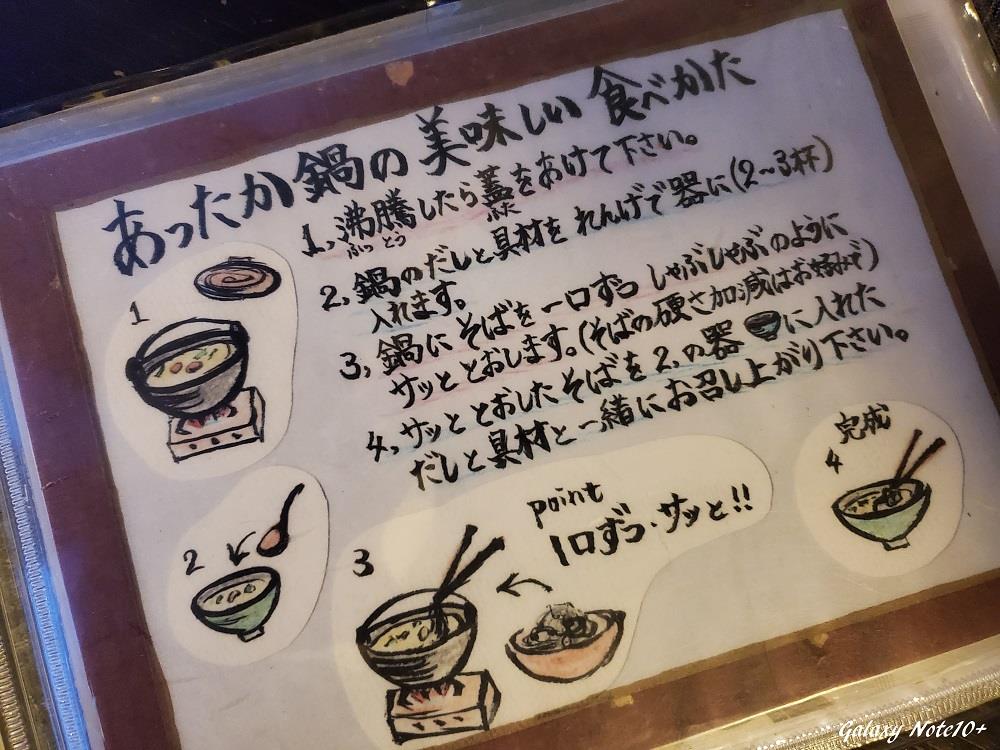 あったか鍋の美味しい食べかた
1、沸騰したら蓋をあけて下さい。
ふっとう ふた
2、鍋のだしと具材を れんげで器に(2〜3杯)
入れます。
3、鍋にそばを一口ずつ しゃぶしゃぶのように
サッととおします。(そばの硬さ加減はお好みで)
4、サッととおしたそばを2、の器に入れた
だしと具材と一緒にお召し上がり下さい。
1
2
3
point
1口ずつ・サッと!!
完成
4
Galaxy Note10+